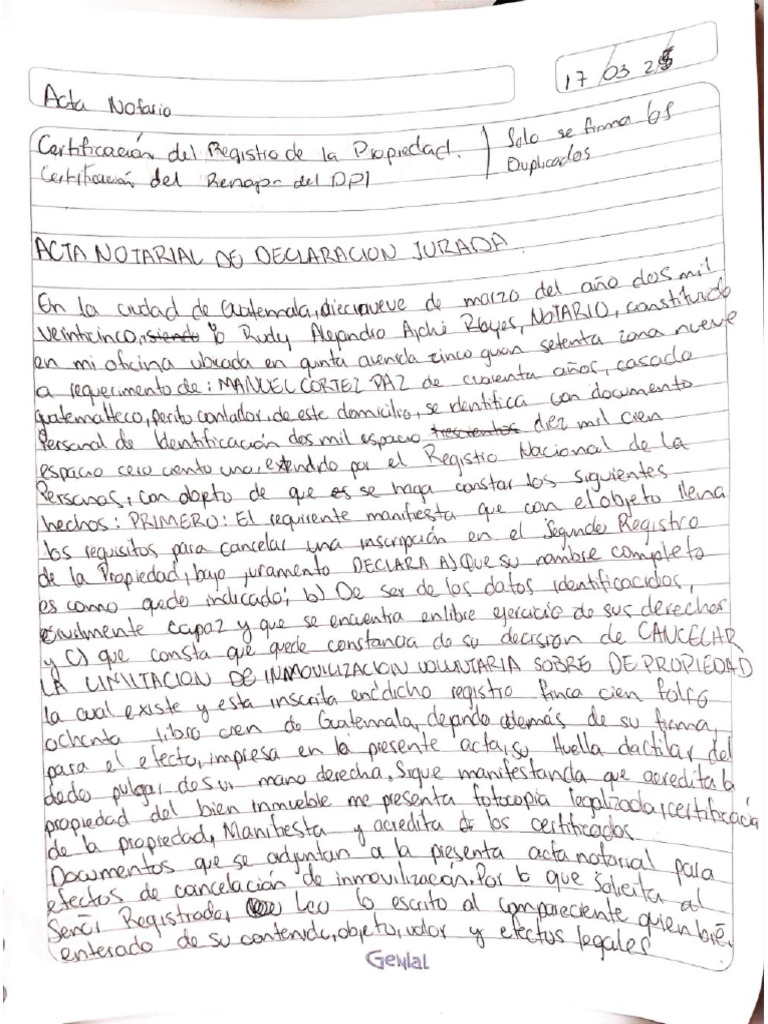 17/03 25
Acta Notario
Certificación del Registro de la Propiedad. Solo se firma los
Certificación del Renap del DPI Duplicados
ACTA NOTARIAL DE DECLARACION JURADA
En la ciudad de Guatemala, diecinueve de marzo del año dos mil
veinticinco, siendo Yo Rudy Alejandro Ajchi Reyes, NOTARIO, constituido
en mi oficina ubicada en quinta avenida cinco guon setenta zona nueve
a requerimento de: MANUEL CORTEZ PAZ de cuarenta años, casado
guatemalteco, perito contador, de este domicilio, se identifica con documento
Personal de Identificación dos mil espacio trescientos diez mil cien
espacio cero ciento uno, extendido por el Registro Nacional de la
Personas, con objeto de que es se haga constar los siguientes
hechos: PRIMERO: El requirente manifiesta que con el objeto llena
los requisitos para cancelar una inscripción en el Segundo Registro
de la Propiedad, bajo juramento DECLARA A) Que su nombre completo
es como quedo indicado; b) De ser de los datos identificacidos,
civilmente capaz y que se encuentra en libre ejercicio de sus derechos
y C) que consta que quede constancia de su decision de CANCELAR
LA LIMITACION DE INMOVILIZACION VOLUNTARIA SOBRE DE PROPIEDAD
la cual existe y esta inscrita en dicho registro finca cien folio
ochenta libro cien de Guatemala, dejando además de su firma,
para el efecto, impresa en la presente acta, su Huella dactilar del
dedo pulgar de su mano derecha. Sigue manifestando que acredita la
propiedad del bien inmueble me presenta fotocopia legalizada, certificación
de la propiedad, Manifiesta y acredita los certificados
Documentos que se adjuntan a la presenta acta notarial para
efectos de cancelación de inmovilización. Por lo que Solicita al
Señor Registrador Leo lo escrito al compareciente quien bre.
enterado de su contenido, objeto, valor y efectos legales
Genial